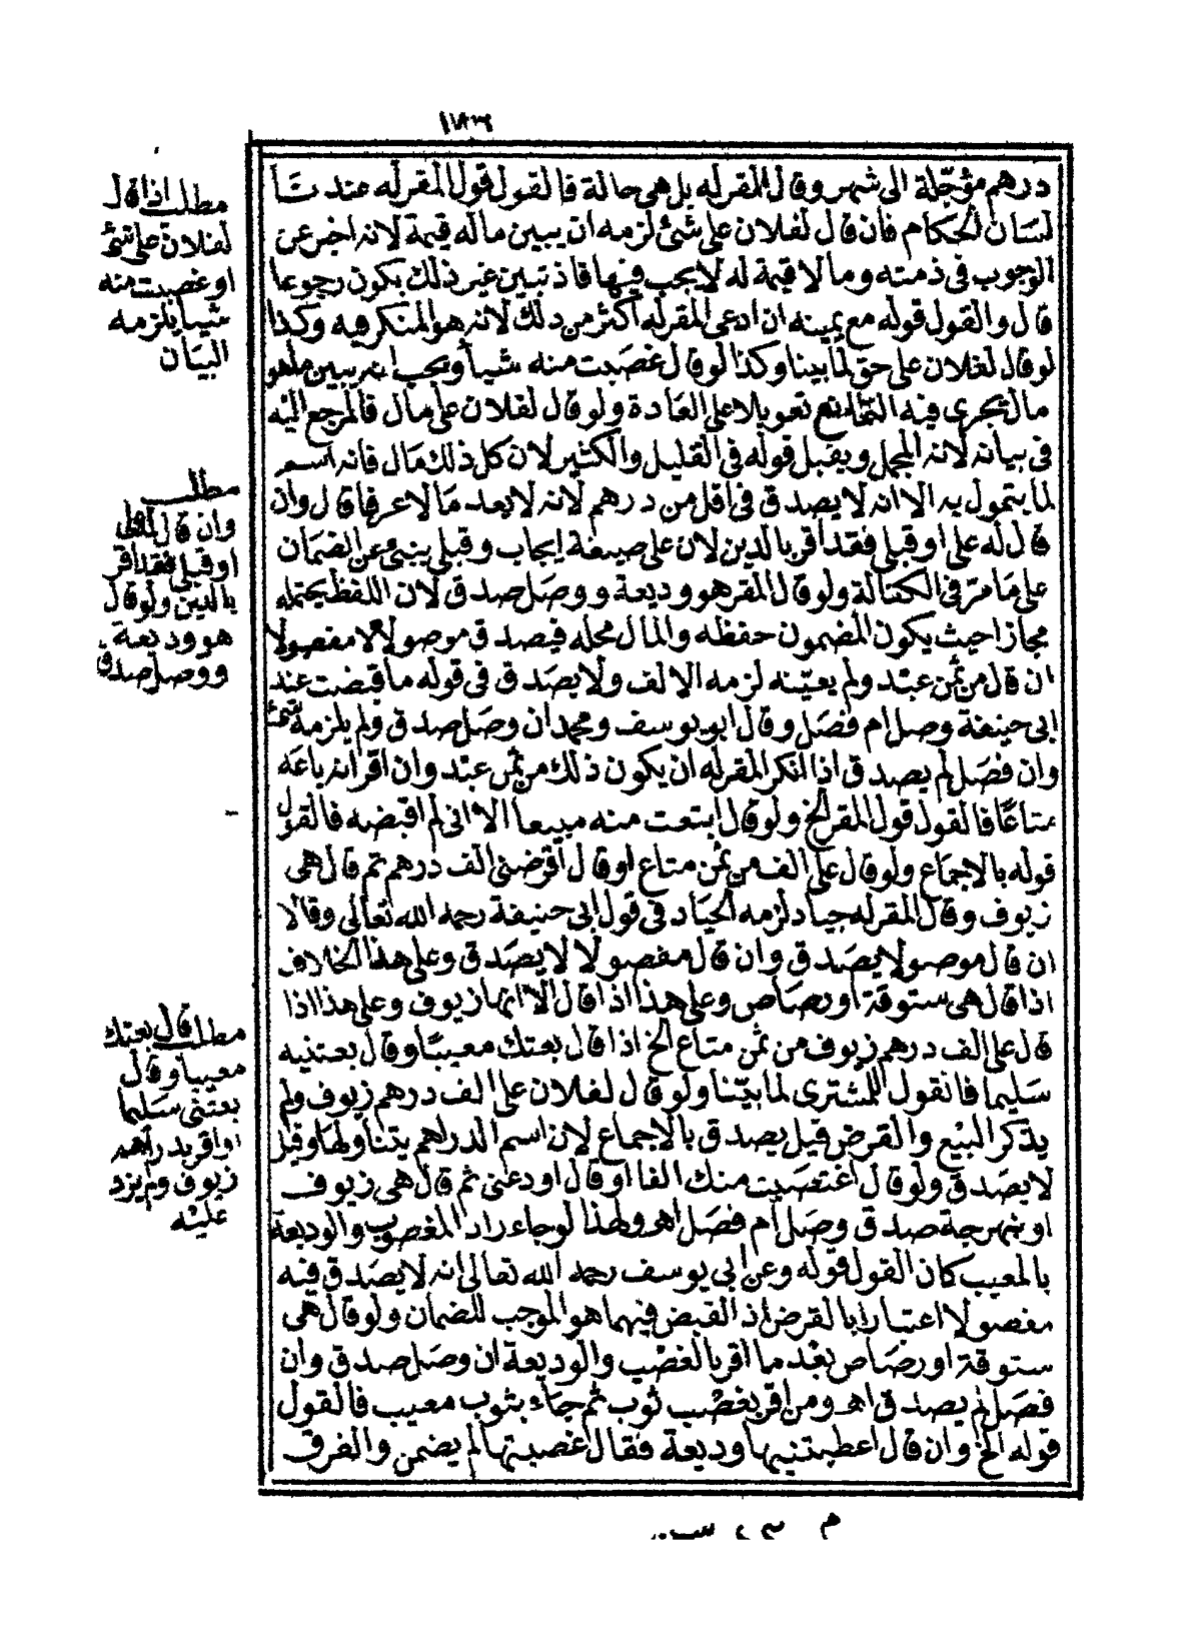 درهم مؤجلة الى شهر وقال المقر له بل هى حالة فالقول قول المقر له عندنا
لسان الحكام فان قال لفلان على شئ لزمه ان يبين ماله قيمة لانه اخبر عن
الوجوب فى ذمته وما لا قيمة له لا يجب فيها فاذ تبين غير ذلك يكون رجوعا
قال والقول قوله مع يمينه ان ادعى المقر له اكثر من ذلك لانه هو المنكر فيه وكذا
لو قال لفلان على حق لما بينا وكذا لو قال غصبت منه شيأ ويجب انه يبين ما هو
مال يجرى فيه التمانع تعويلا على العادة ولو قال لفلان على مال فالمرجع اليه
فى بيانه لانه المجمل ويقبل قوله فى القليل والكثير لان كل ذلك مال فانه اسم
لما يتمول به الا انه لا يصدق فى اقل من درهم لانه لا يعد مالا عرفا قال وان
قال له على او قبلى فقد اقر بالدين لان على صيغة ايجاب وقبلى ينبئ عن الضمان
على ما مر فى الكفالة ولو قال المقر هو وديعة ووصل صدق لان اللفظ يحتمله
مجازا حيث يكون المضمون حفظه والمال محله فيصدق موصولا لا مفصولا
ان قال من ثمن عبد ولم يعينه لزمه الالف ولا يصدق فى قوله ما قبضت عند
ابى حنيفة وصل ام فصل وقال ابو يوسف ومحمد ان وصل صدق ولم يلزمه شئ
وان فصل لم يصدق اذا انكر المقر له ان يكون ذلك من ثمن عبد وان اقر انه باعه
متاعا فالقول قول المقر الخ ولو قال ابتعت منه مبيعا الا انى لم اقبضه فالقول
قوله بالاجماع ولو قال على الف من ثمن متاع او قال اقرضنى الف درهم ثم قال هى
زيوف وقال المقر له جياد لزمه الجياد فى قول ابى حنيفة رحمه الله تعالى وقالا
ان قال موصولا يصدق وان قال مفصولا لا يصدق وعلى هذا الخلاف
اذا قال هى ستوقة او رصاص وعلى هذا اذا قال الا انها زيوف وعلى هذا اذا
قال على الف درهم زيوف من ثمن متاع الخ اذا قال بعتك معيبا وقال بعتنيه
سليما فالقول للمشترى لما بينا ولو قال لفلان على الف درهم زيوف ولم
يذكر البيع والقرض قيل يصدق بالاجماع لان اسم الدراهم يتناولها وقيل
لا يصدق ولو قال اغتصبت منك الفا او قال اودعنى ثم قال هى زيوف
او نبهرجة صدق وصل ام فصل اهـ ولهذا لو جاء راد المغصوب والوديعة
بالمعيب كان القول قوله وعن ابى يوسف رحمه الله تعالى انه لا يصدق فيه
مفصولا اعتبارا بالقرض اذ القبض فيهما هو الموجب للضمان ولو قال هى
ستوقة او رصاص بعد ما اقر بالغصب والوديعة ان وصل صدق وان
فصل لم يصدق اهـ ومن اقر بغصب ثوب ثم جاء بثوب معيب فالقول
قوله الخ وان قال اعطيتنيها وديعة فقال غصبتها لم يضمن والفرق
مطلب اذا قال
لفلان على شئ
او غصبت منه
شيأ يلزمه
البيان
مطلب
وان قال له على
او قبلى فقد اقر
بالدين ولو قال
هو وديعة
ووصل صدق
مطلب قال بعتك
معيبا وقال
بعتنى سليما
او اقر بدراهم
زيوف ولم يزد
عليه